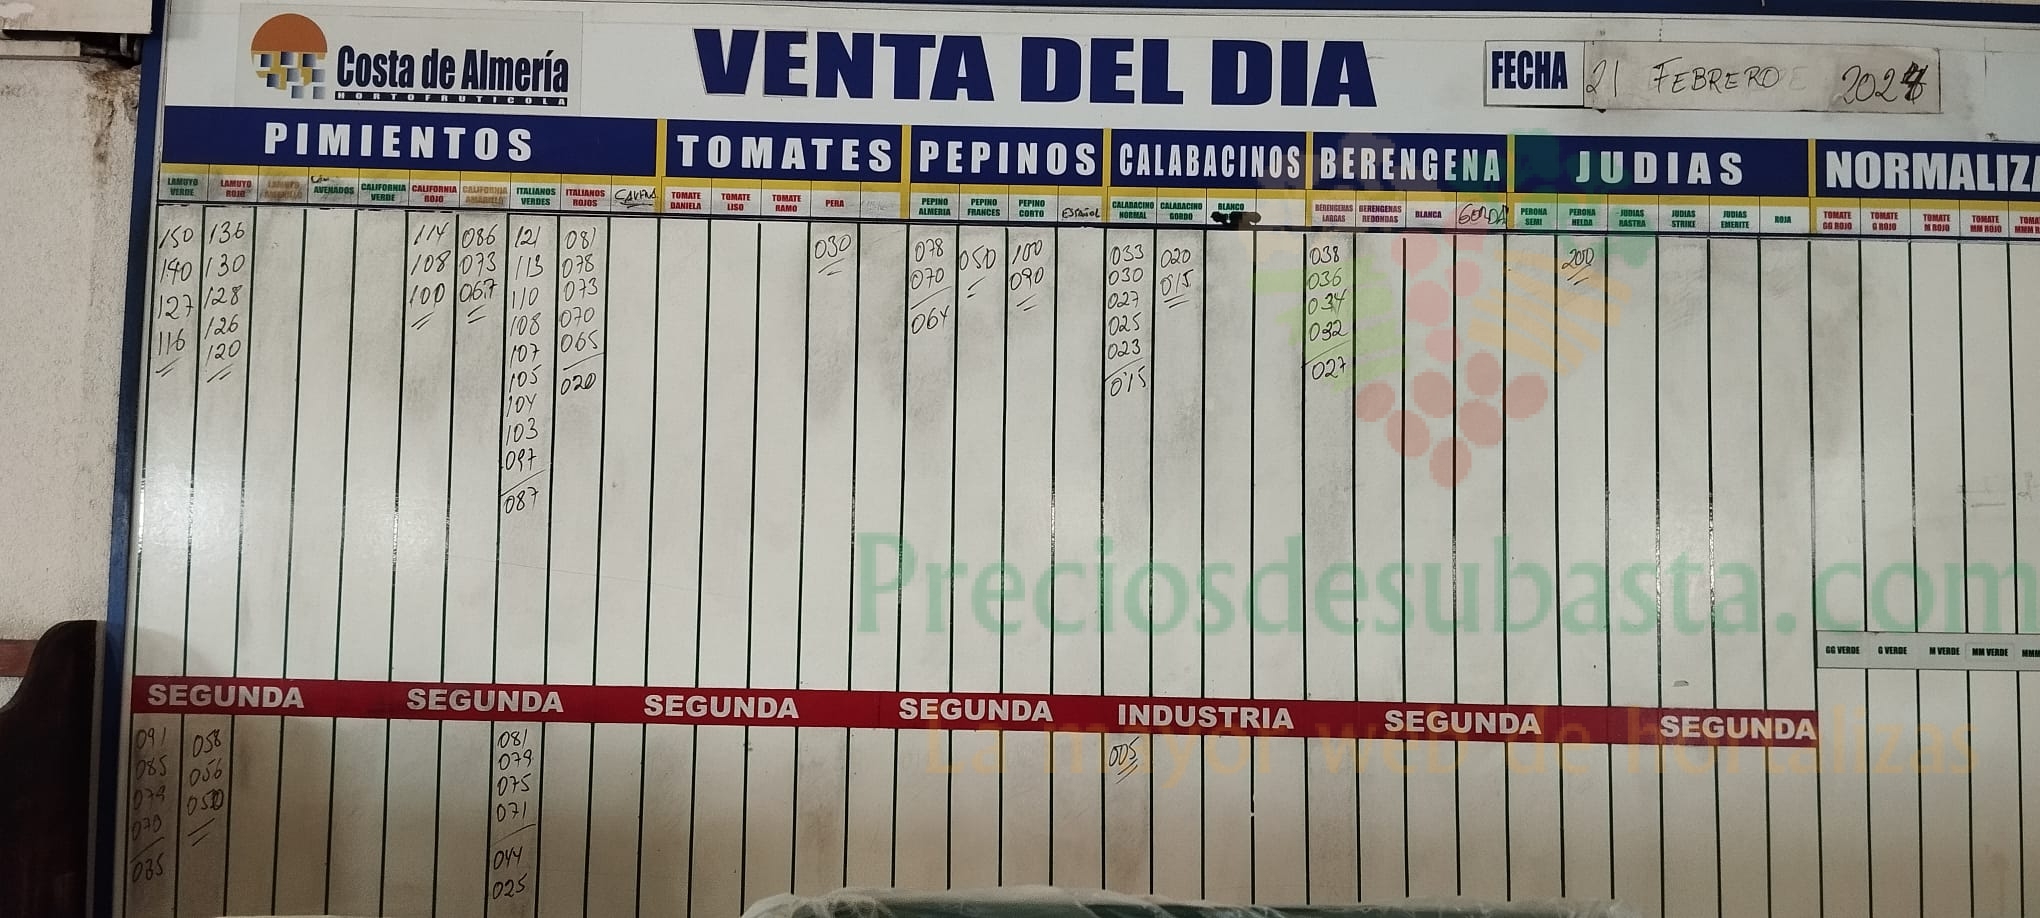 Costa de Almería
HORTOFRUTICOLA
VENTA DEL DIA
FECHA 21 FEBRERO 2024
PIMIENTOS TOMATES PEPINOS CALABACINOS BERENGENA JUDIAS NORMALIZA
LAMUYO VERDE
LAMUYO ROJO
LAMUYO AMARILLO
AVENADOS
CALIFORNIA VERDE
CALIFORNIA ROJO
CALIFORNIA AMARILLO
ITALIANOS VERDES
ITALIANOS ROJOS
TOMATE DANIELA
TOMATE LISO
TOMATE RAMO
PERA
PEPINO ALMERIA
PEPINO FRANCES
PEPINO CORTO
ESPAÑOL
CALABACINO NORMAL
CALABACINO GORDO
BLANCO
BERENGENAS LARGAS
BERENGENAS REDONDAS
BLANCA
GORDA
PERONA SEMI
PERONA HELDA
JUDIAS RASTRA
JUDIAS STRIKE
JUDIAS EMERITE
ROJA
TOMATE GG ROJO
TOMATE G ROJO
TOMATE M ROJO
TOMATE MM ROJO
150
140
127
116
136
130
128
126
120
114
108
100
086
073
067
121
113
110
108
107
105
104
103
097
087
081
078
073
070
065
020
030
078
070
064
050
100
090
033
030
027
025
023
015
020
015
038
036
034
032
027
200
Preciosdesubasta.com
La mayor web de hortalizas
GG VERDE G VERDE M VERDE MM VERDE
SEGUNDA SEGUNDA SEGUNDA SEGUNDA INDUSTRIA SEGUNDA SEGUNDA
091
085
079
070
035
058
056
050
081
079
075
071
044
025
005